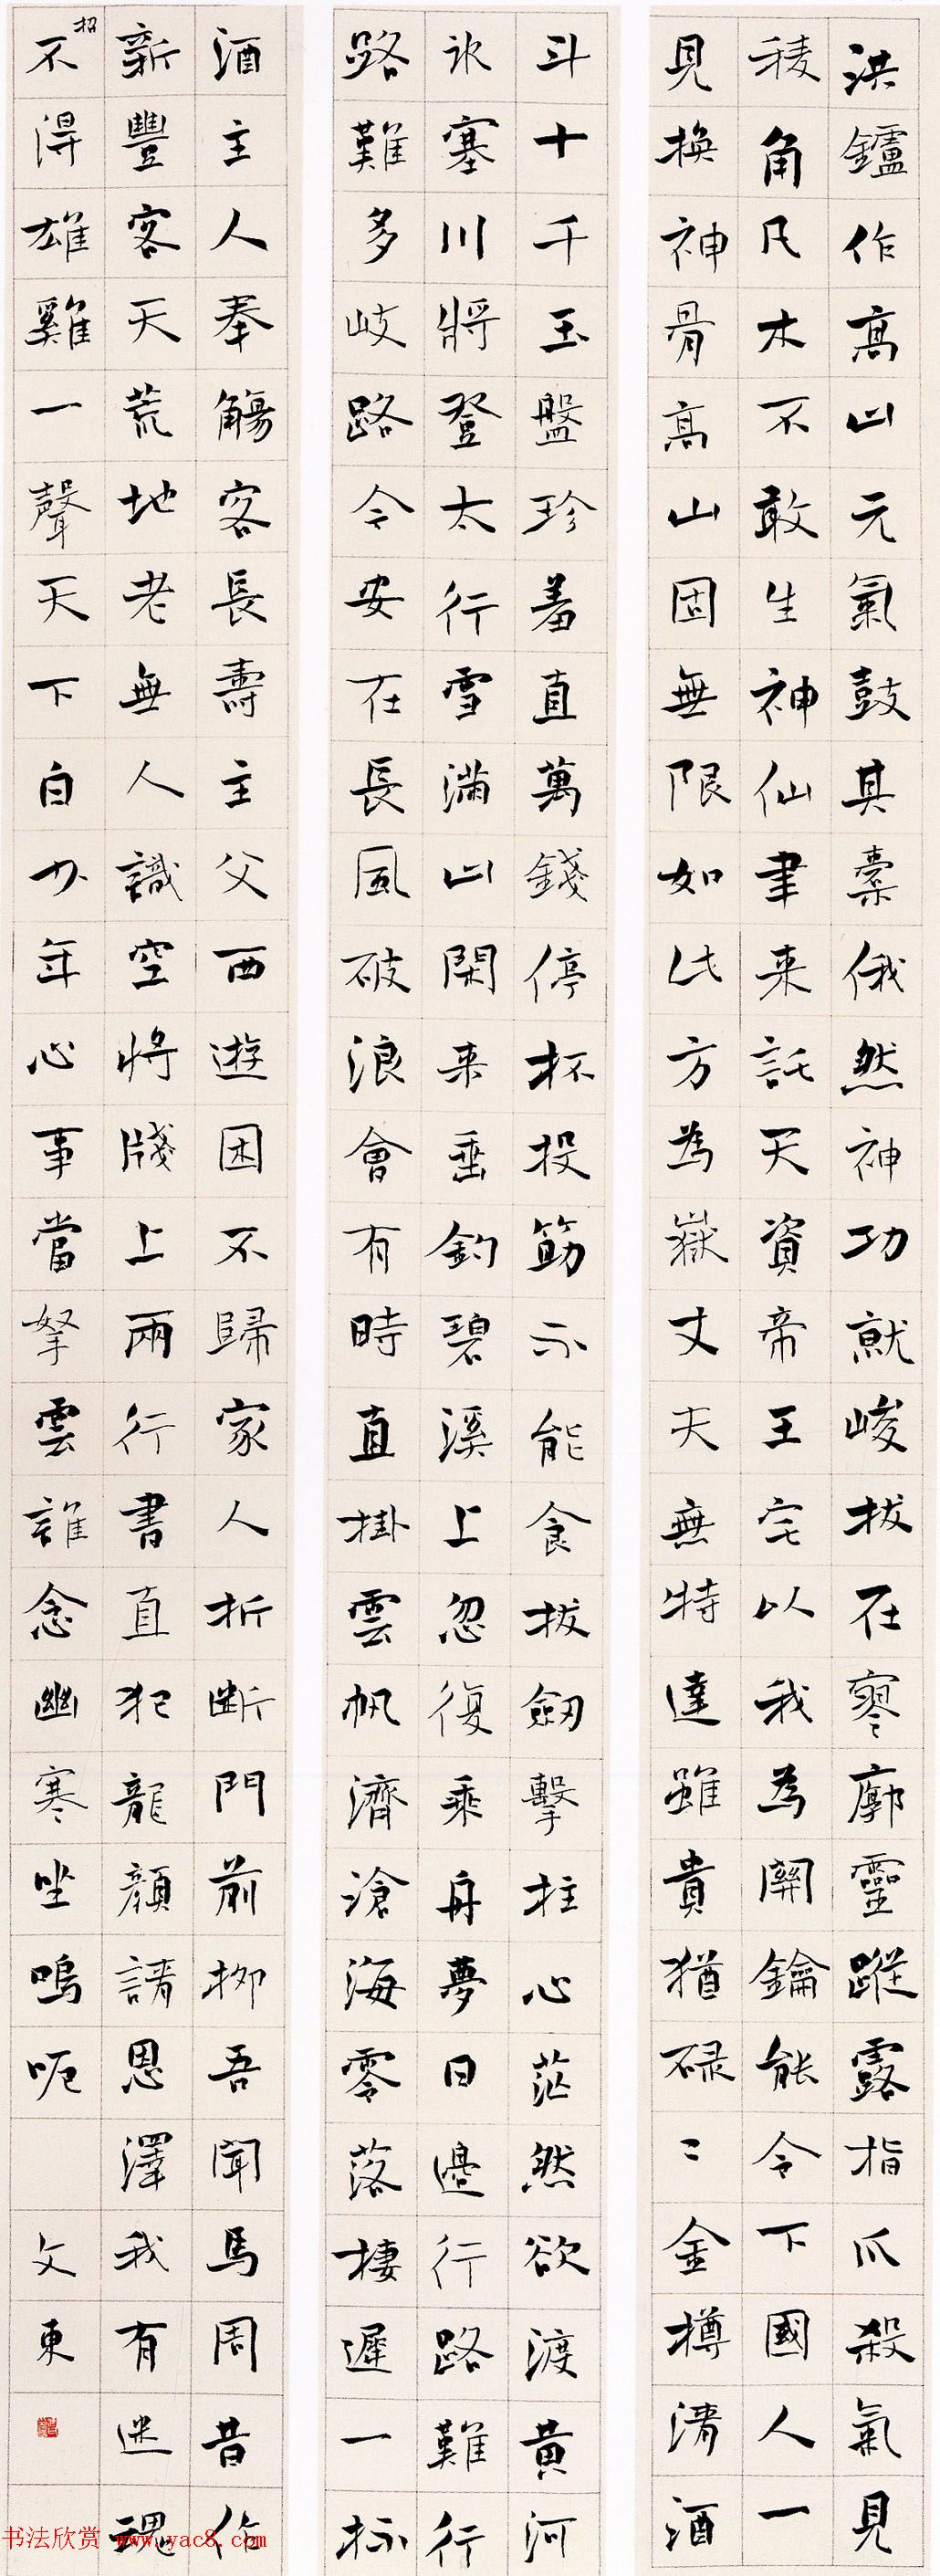 洪鑪作高山元氣鼓其橐俄然神功就峻拔在寥廓靈蹤露指爪殺氣見
稜角凡木不敢生神仙聿来託天資帝王宅以我為關鑰能令下國人一
見換神骨高山固無限如此方為嶽丈夫無特達雖貴猶碌〻金樽清酒
斗十千玉盤珍羞直萬錢停杯投筯不能食拔劒擊柱心茫然欲渡黄河
冰塞川將登太行雪滿山閑来垂釣碧溪上忽復乘舟夢日邊行路難行
路難多岐路今安在長風破浪會有時直掛雲帆濟滄海零落棲遲一杯
酒主人奉觴客長壽主父西遊困不歸家人折斷門前柳吾聞馬周昔作
新豐客天荒地老無人識空將牋上兩行書直犯龍顏請恩澤我有迷魂
招不得雄雞一聲天下白少年心事當拏雲誰念幽寒坐嗚呃 文東
书法欣赏 www.yac8.com